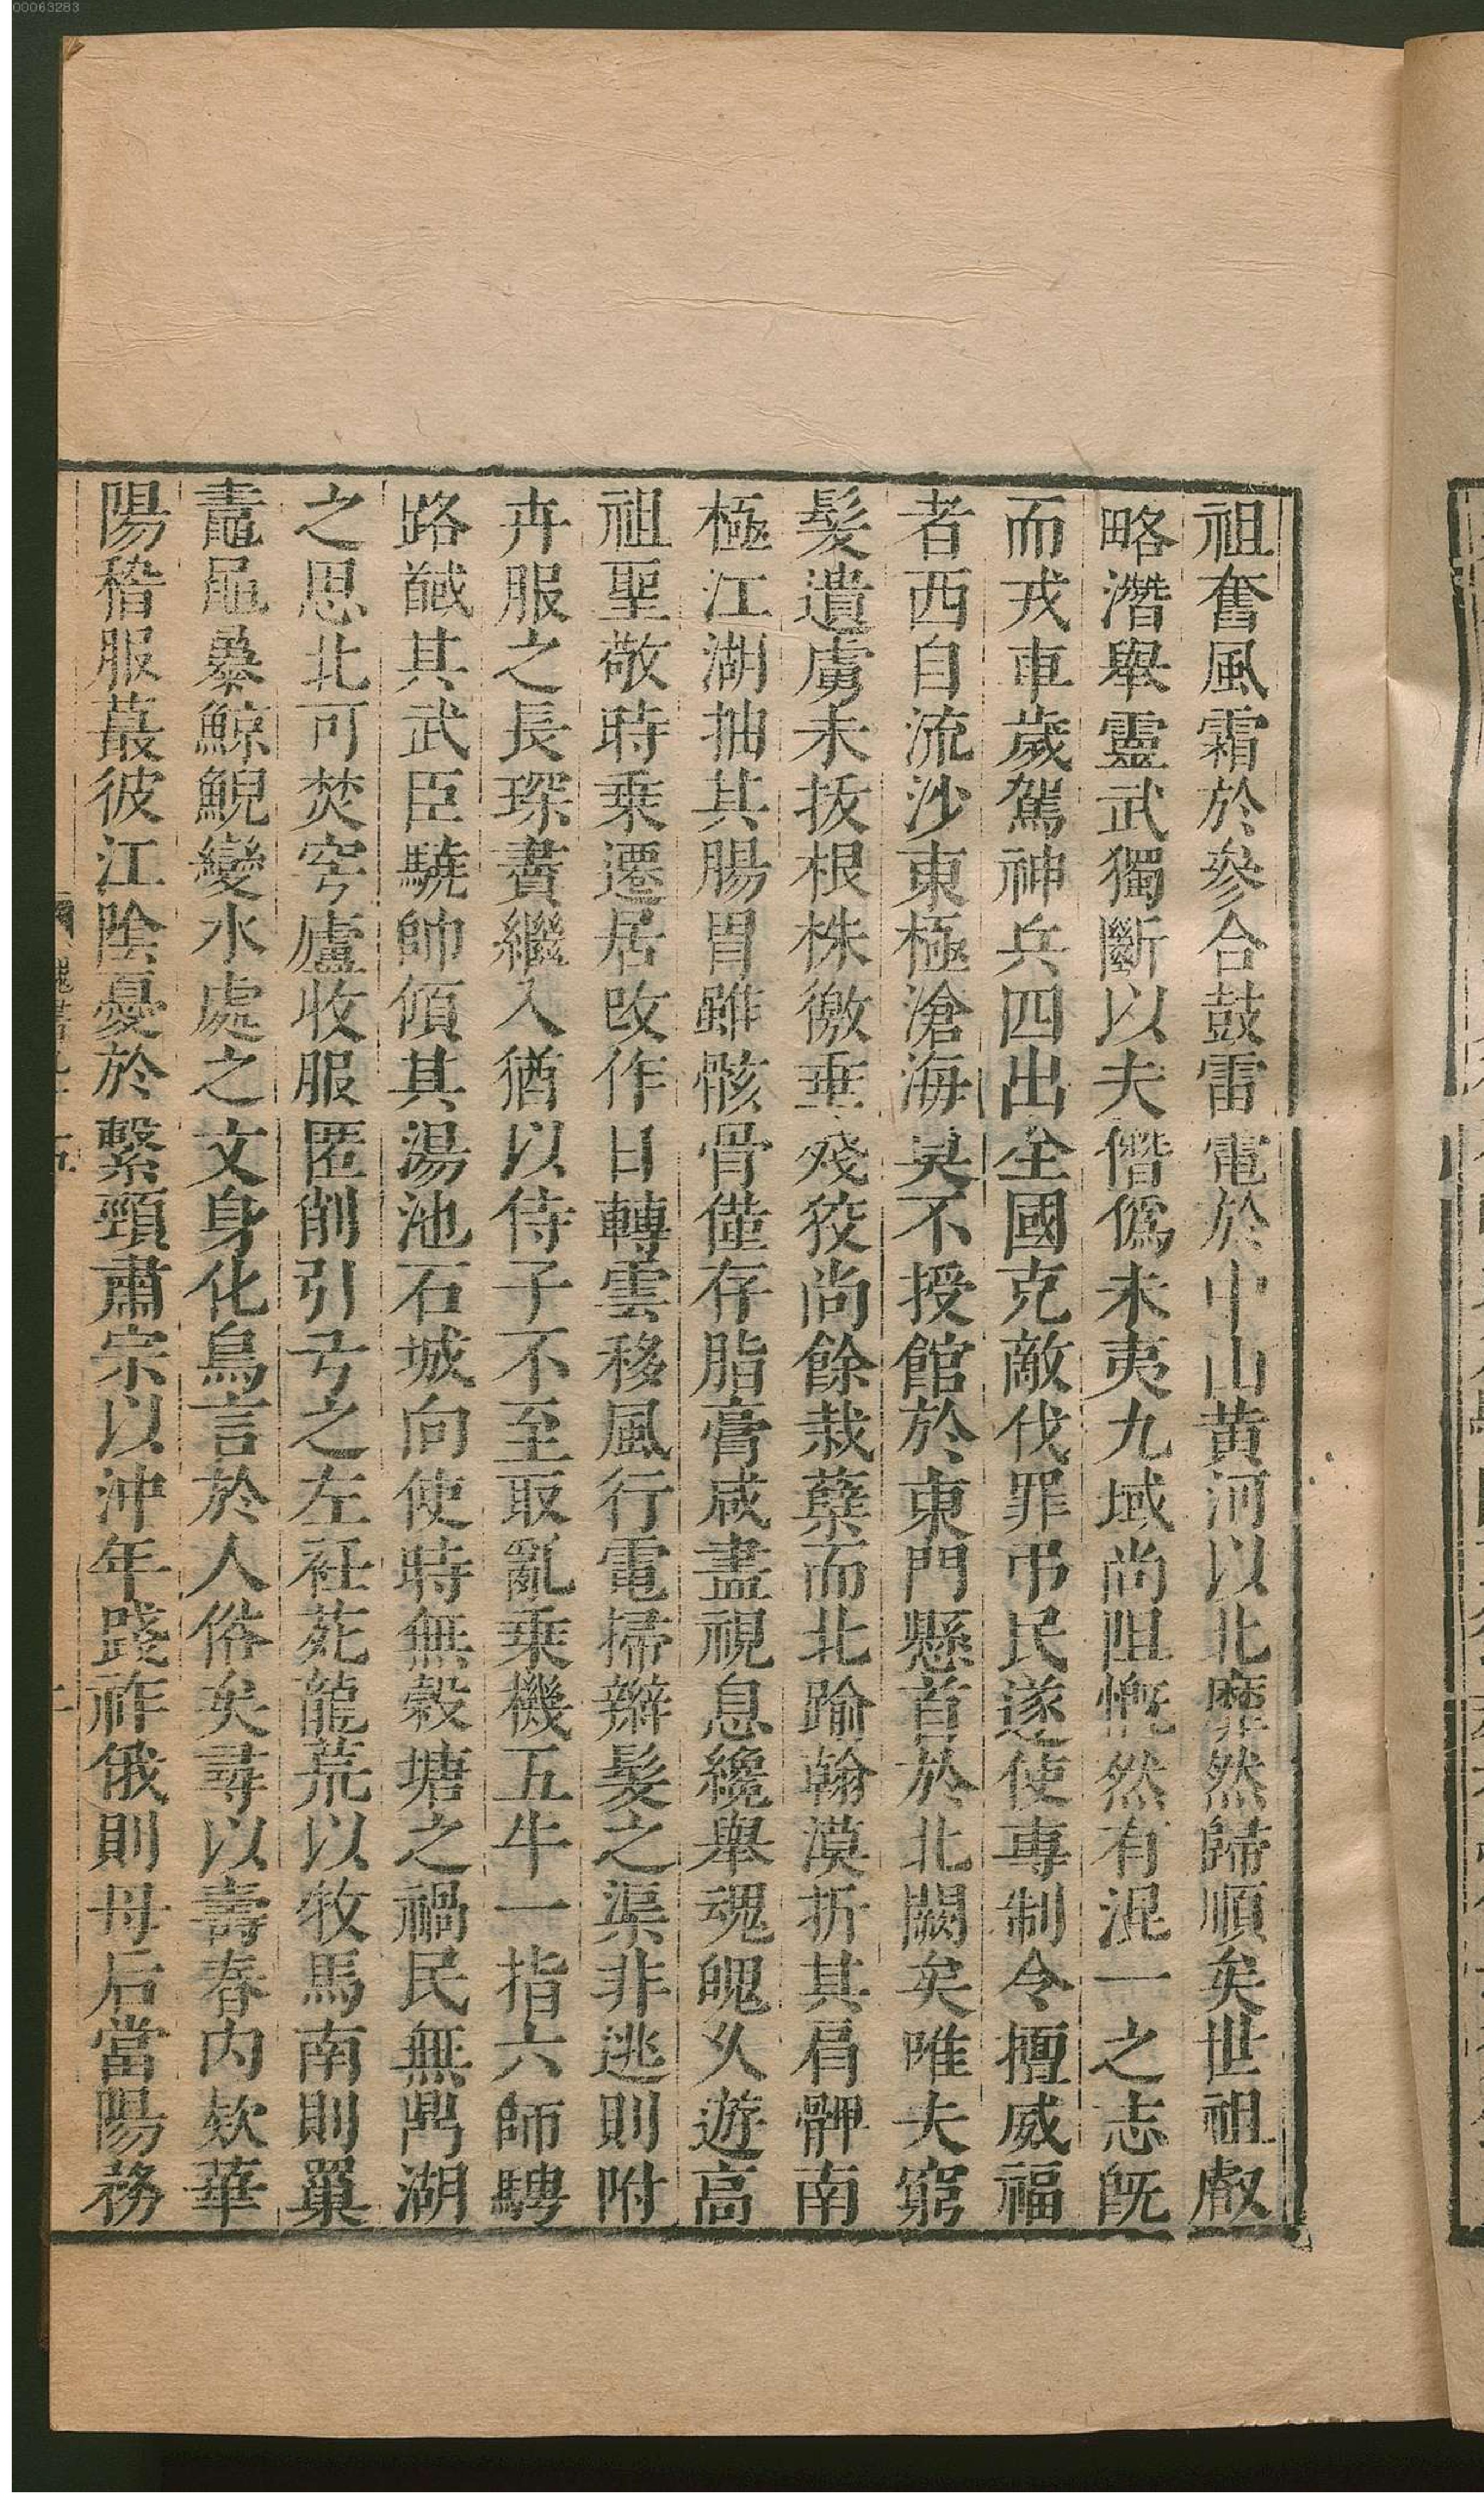 00063283
祖奮風霜於參合鼓雷電於中山黄河以北靡然歸順矣世祖叡
略潛舉靈武獨斷以夫僭僞未夷九域尚阻慨然有混一之志既
而戎車歲駕神兵四出全國克敵伐罪弔民遂使專制令擅威福
者西自流沙東極滄海莫不授館於東門懸首於北闕矣唯夫窮
髮遺虜未拔根株徼垂殘狡尚餘栽蘖而北踰翰漠折其肩髀南
極江湖抽其腸胃雖骸骨僅存脂膏咸盡視息纔舉魂魄久遊高
祖聖敬時乗遷居改作日轉雲移風行電掃辮髮之渠非逃則附
卉服之長琛賮繼入猶以侍子不至取亂乗機五牛一指六師騁
路馘其武臣驍帥傾其湯池石城向使時無穀塘之禍民無鼎湖
之思北可焚穹廬收服匿削引弓之左衽苑龍荒以牧馬南則罩
鼃黽暴鯨鯢變水處之文身化鳥言於人俗矣尋以壽春内欵華
陽稽服蕞彼江陰憂於繫頸肅宗以沖年踐祚俄則母后當陽務